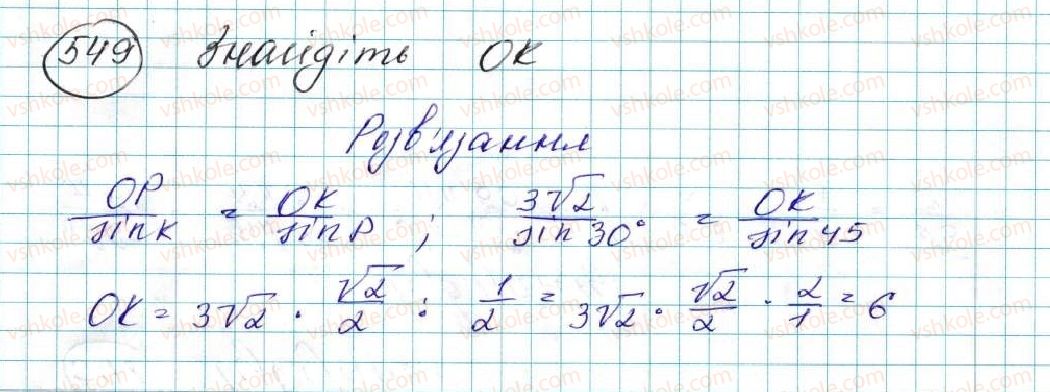 549 Знайдіть OK
Розв'язання
OP/sin K = OK/sin P ; 3√2/sin 30° = OK/sin 45
OK = 3√2 · √2/2 : 1/2 = 3√2 · √2/2 · 2/1 = 6